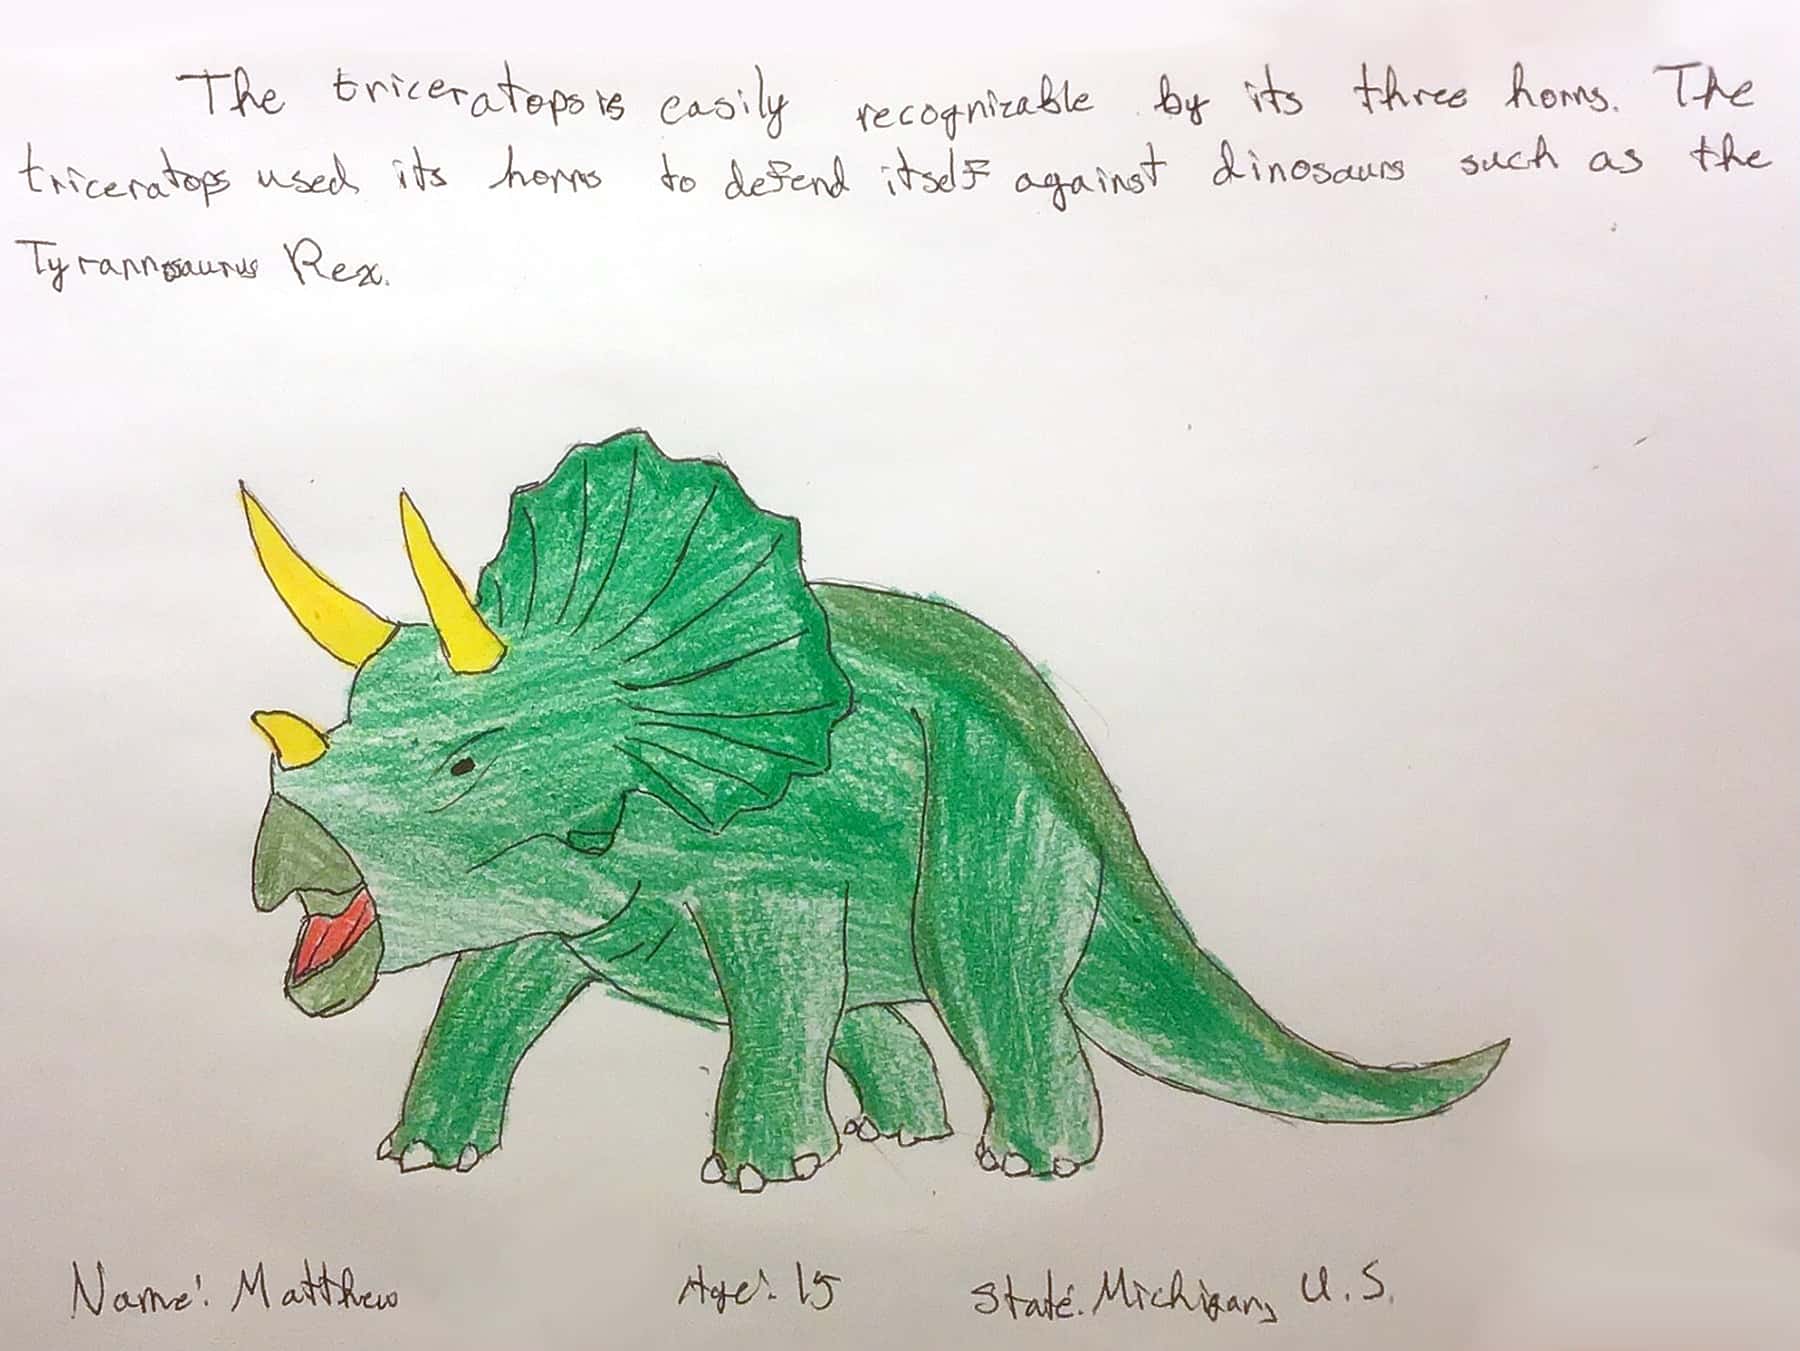 The triceratops is easily recognizable by its three horns. The
triceratops used its horns to defend itself against dinosaurs such as the
Tyrannosaurus Rex.
Name: Matthew Age: 15 State: Michigan, U.S.